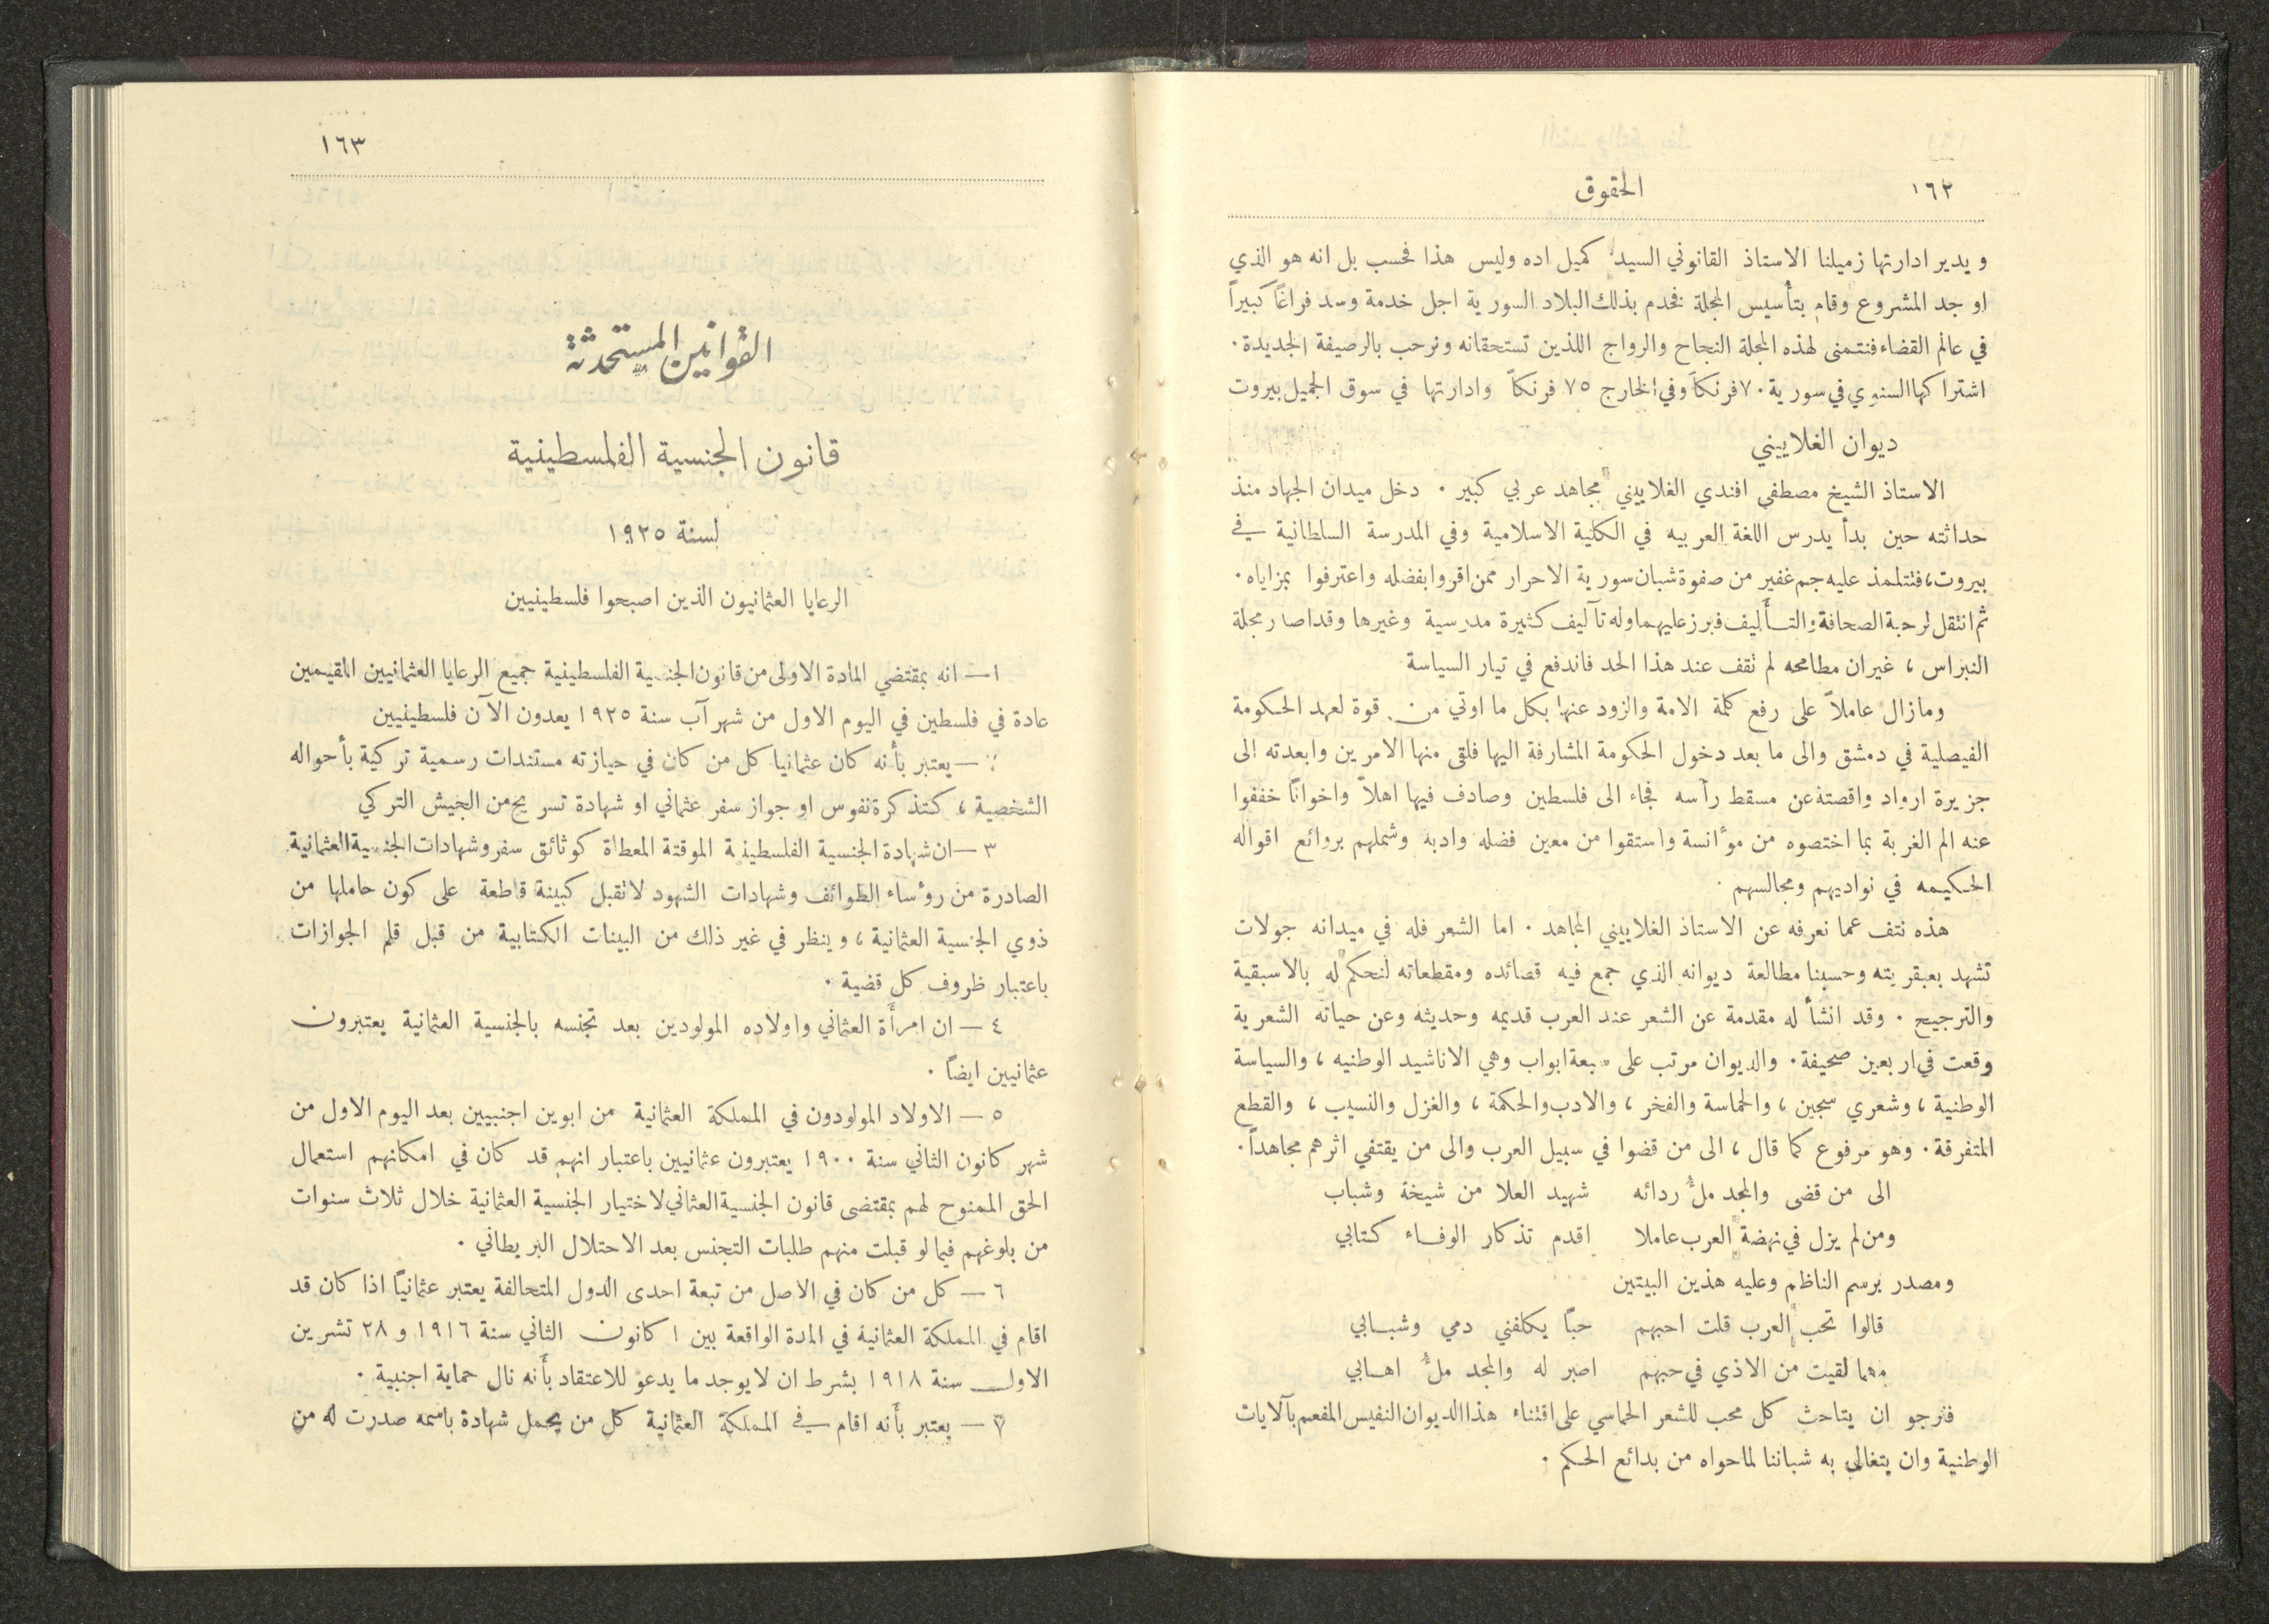 ١٦٢
الحقوق
ويدير ادارتها زميلنا الاستاذ القانوني السيد كميل اده وليس هذا فحسب بل انه هو الذي
اوجد المشروع وقام بتأسيس المجلة فخدم بذلك البلاد السورية اجل خدمة وسد فراغاً كبيراً
في عالم القضاء فنتمنى لهذه المجلة النجاح والرواج اللذين تستحقانه ونرحب بالرصيفة الجديدة ٠
اشتراكها السنوي في سورية ٧٠ فرنكاً وفي الخارج ٧٥ فرنكاً وادارتها في سوق الجميل بيروت
ديوان الغلاييني
الاستاذ الشيخ مصطفى افندي الغلاييني مجاهد عربي كبير ٠ دخل ميدان الجهاد منذ
حداثته حين بدأ يدرس اللغة العربيه في الكلية الاسلامية وفي المدرسة السلطانية في
بيروت، فتتلمذ عليه جم غفير من صفوة شبان سورية الاحرار ممن اقروا بفضله واعترفوا بمزاياه ٠
ثم انتقل لرحبة الصحافة والتأليف فبرز عليهما وله تآليف كثيرة مدرسية وغيرها وقد اصدر مجلة
النبراس ، غير ان مطامحه لم تقف عند هذا الحد فاندفع في تيار السياسة
ومازال عاملاً على رفع كلمة الامة والزود عنها بكل ما اوتي من قوة لعهد الحكومة
الفيصلية في دمشق والى ما بعد دخول الحكومة المشارفة اليها فلقى منها الامرين وابعدته الى
جزيرة ارواد واقصته عن مسقط رأسه فجاء الى فلسطين وصادف فيها اهلاً واخواناً خففوا
عنه الم الغربة بما اختصوه من مؤانسة واستقوا من معين فضله وادبه وشملهم بروائع اقواله
الحكيمه في نواديهم ومجالسهم ٠
هذه نتف عما نعرفه عن الاستاذ الغلاييني المجاهد ٠ اما الشعر فله في ميدانه جولات
تشهد بعبقريته وحسبنا مطالعة ديوانه الذي جمع فيه قصائده ومقطعاته لنحكم له بالاسبقية
والترجيح ٠ وقد انشأ له مقدمة عن الشعر عند العرب قديمه وحديثه وعن حياته الشعرية
وقعت في اربعين صحيفة ٠ والديوان مرتب على سبعة ابواب وهي الاناشيد الوطنيه ، والسياسة
الوطنية ، وشعري سجين ، والحماسة والفخر ، والادب والحكمة ، والغزل والنسيب ، والقطع
المتفرقة ٠ وهو مرفوع كما قال ، الى من قضوا في سبيل العرب والى من يقتفي اثرهم مجاهداً ٠
الى من قضى والمجد ملُّ ردائه شهيد العلا من شيخة وشباب
ومن لم يزل في نهضة العرب عاملا اقدم تذكار الوفاء كتابي
ومصدر برسم الناظم وعليه هذين البيتين
قالوا تحب العرب قلت احبهم حباً يكلفني دمي وشبابي
مهما لقيت من الاذي في حبهم اصبر له والمجد ملُّ اهابي
فنرجو ان يتاحث كل محب للشعر الحماسي على اقتناء هذا الديوان النفيس المفعم بآلايات
الوطنية وان يتغالى به شباننا لما حواه من بدائع الحكم ٠
١٦٣
القوانين المستحدثة
قانون الجنسية الفلسطينية
لسنة ١٩٢٥
الرعايا العثمانيون الذين اصبحوا فلسطينيين
١ — انه بمقتضي المادة الاولى من قانون الجنسية الفلسطينية جميع الرعايا العثمانيين المقيمين
عادة في فلسطين في اليوم الاول من شهر آب سنة ١٩٢٥ يعدون الآن فلسطينيين
٢ — يعتبر بأنه كان عثمانيا كل من كان في حيازته مستندات رسمية تركية بأحواله
الشخصية ، كتذكرة نفوس او جواز سفر عثماني او شهادة تسريح من الجيش التركي
٣ — ان شهادة الجنسية الفلسطينية الموقتة المعطاة كوثائق سفر وشهادات الجنسية العثمانية
الصادرة من رؤساء الطوائف وشهادات الشهود لا تقبل كبينة قاطعة على كون حاملها من
ذوي الجنسية العثمانية ، وينظر في غير ذلك من البينات الكتابية من قبل قلم الجوازات
باعتبار ظروف كل قضية ٠
٤ — ان امرأة العثماني واولاده المولودين بعد تجنسه بالجنسية العثمانية يعتبرون
عثمانيين ايضاً ٠
٥ — الاولاد المولودون في المملكة العثمانية من ابوين اجنبيين بعد اليوم الاول من
شهر كانون الثاني سنة ١٩٠٠ يعتبرون عثمانيين باعتبار انهم قد كان في امكانهم استعمال
الحق الممنوح لهم بمقتضى قانون الجنسية العثماني لاختيار الجنسية العثمانية خلال ثلاث سنوات
من بلوغهم فيما لو قبلت منهم طلبات التجنس بعد الاحتلال البريطاني ٠
٦ — كل من كان في الاصل من تبعة احدى الدول المتحالفة يعتبر عثمانياً اذا كان قد
اقام في المملكة العثمانية في المدة الواقعة بين ١ كانون الثاني سنة ١٩١٦ و ٢٨ تشرين
الاول سنة ١٩١٨ بشرط ان لا يوجد ما يدعو للاعتقاد بأنه نال حماية اجنبية ٠
— يعتبر بأنه اقام في المملكة العثمانية كل من يحمل شهادة باسمه صدرت له من